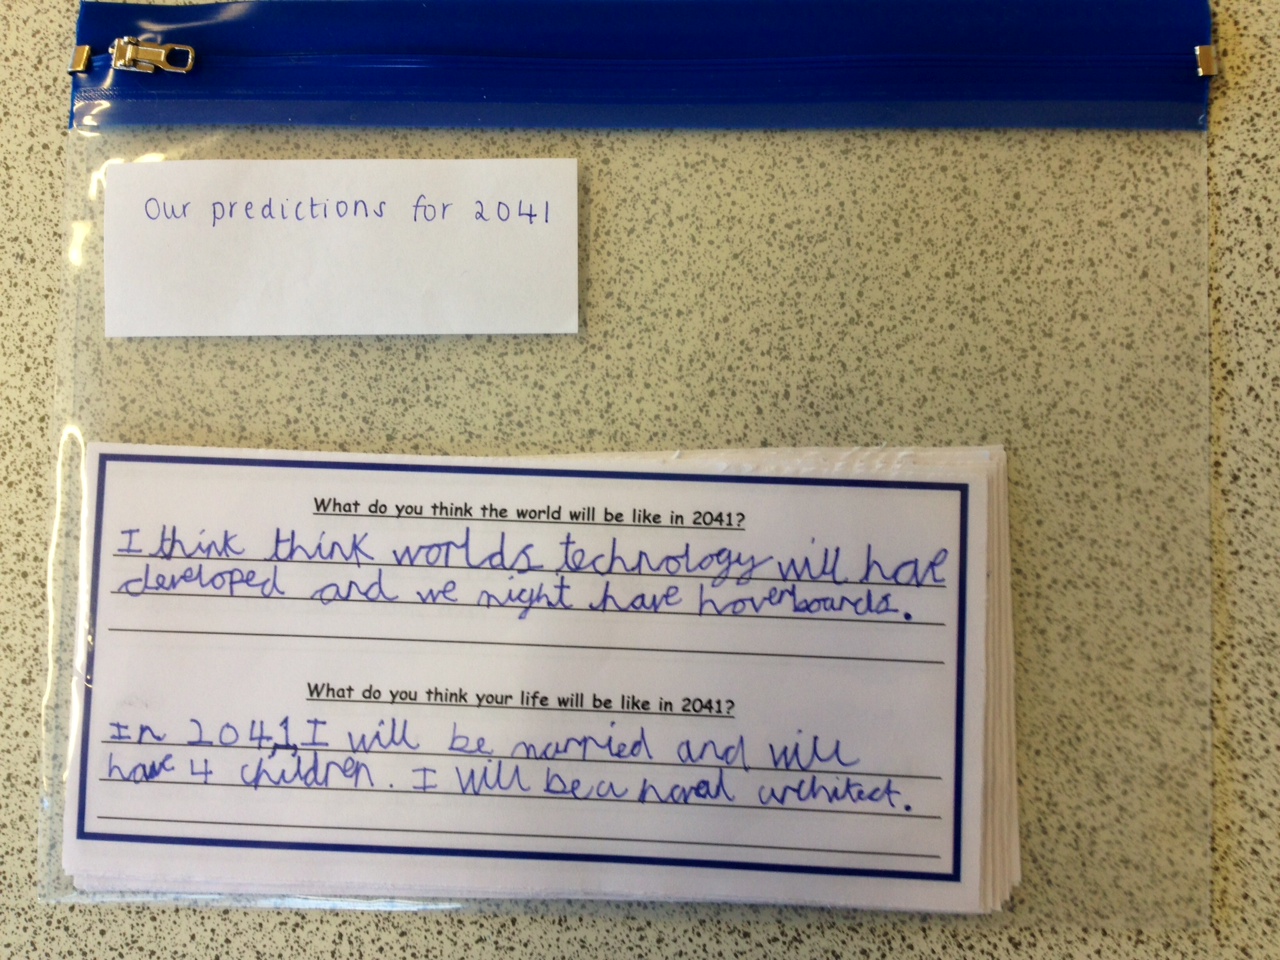 Our predictions for 2041
What do you think the world will be like in 2041?
I think think worlds technology will have
developed and we might have hoverboards.
What do you think your life will be like in 2041?
In 2041, I will be married and will
have 4 children. I will be a naval architect.